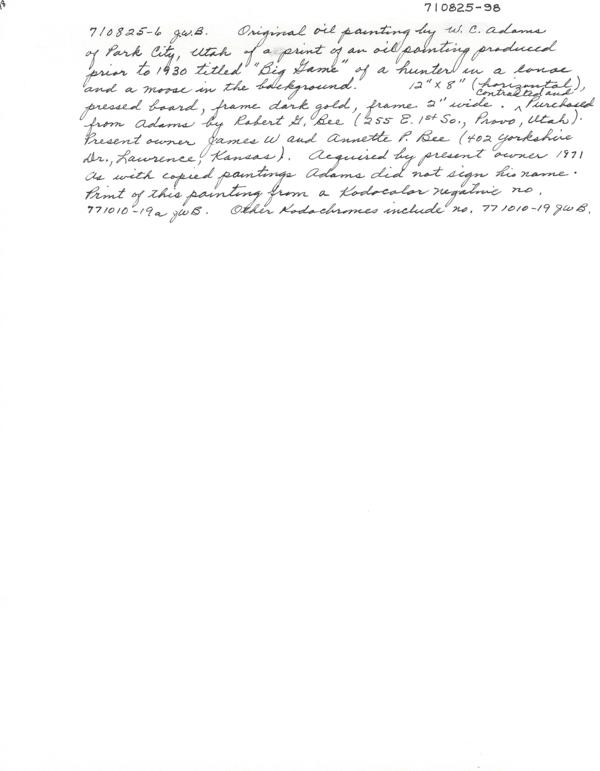 710825-98
710825-6 JWB. Original oil painting by W. C. Adams
of Park City, Utah of a print of an oil painting produced
prior to 1930 titled "Big Game" of a hunter in a canoe
and a moose in the background. 12" x 8" (horizontal),
pressed board, frame dark gold, frame 2" wide. ^ contracted and Purchased
from Adams by Robert G. Bee (255 E. 1st So., Provo, Utah).
Present owner James W and Annette P. Bee (402 Yorkshire
Dr., Lawrence, Kansas). Acquired by present owner 1971
As with copied paintings Adams did not sign his name.
Print of this painting from a Kodacolor negative no.
771010-19a JWB. Other Kodachromes include no. 771010-19 JWB.